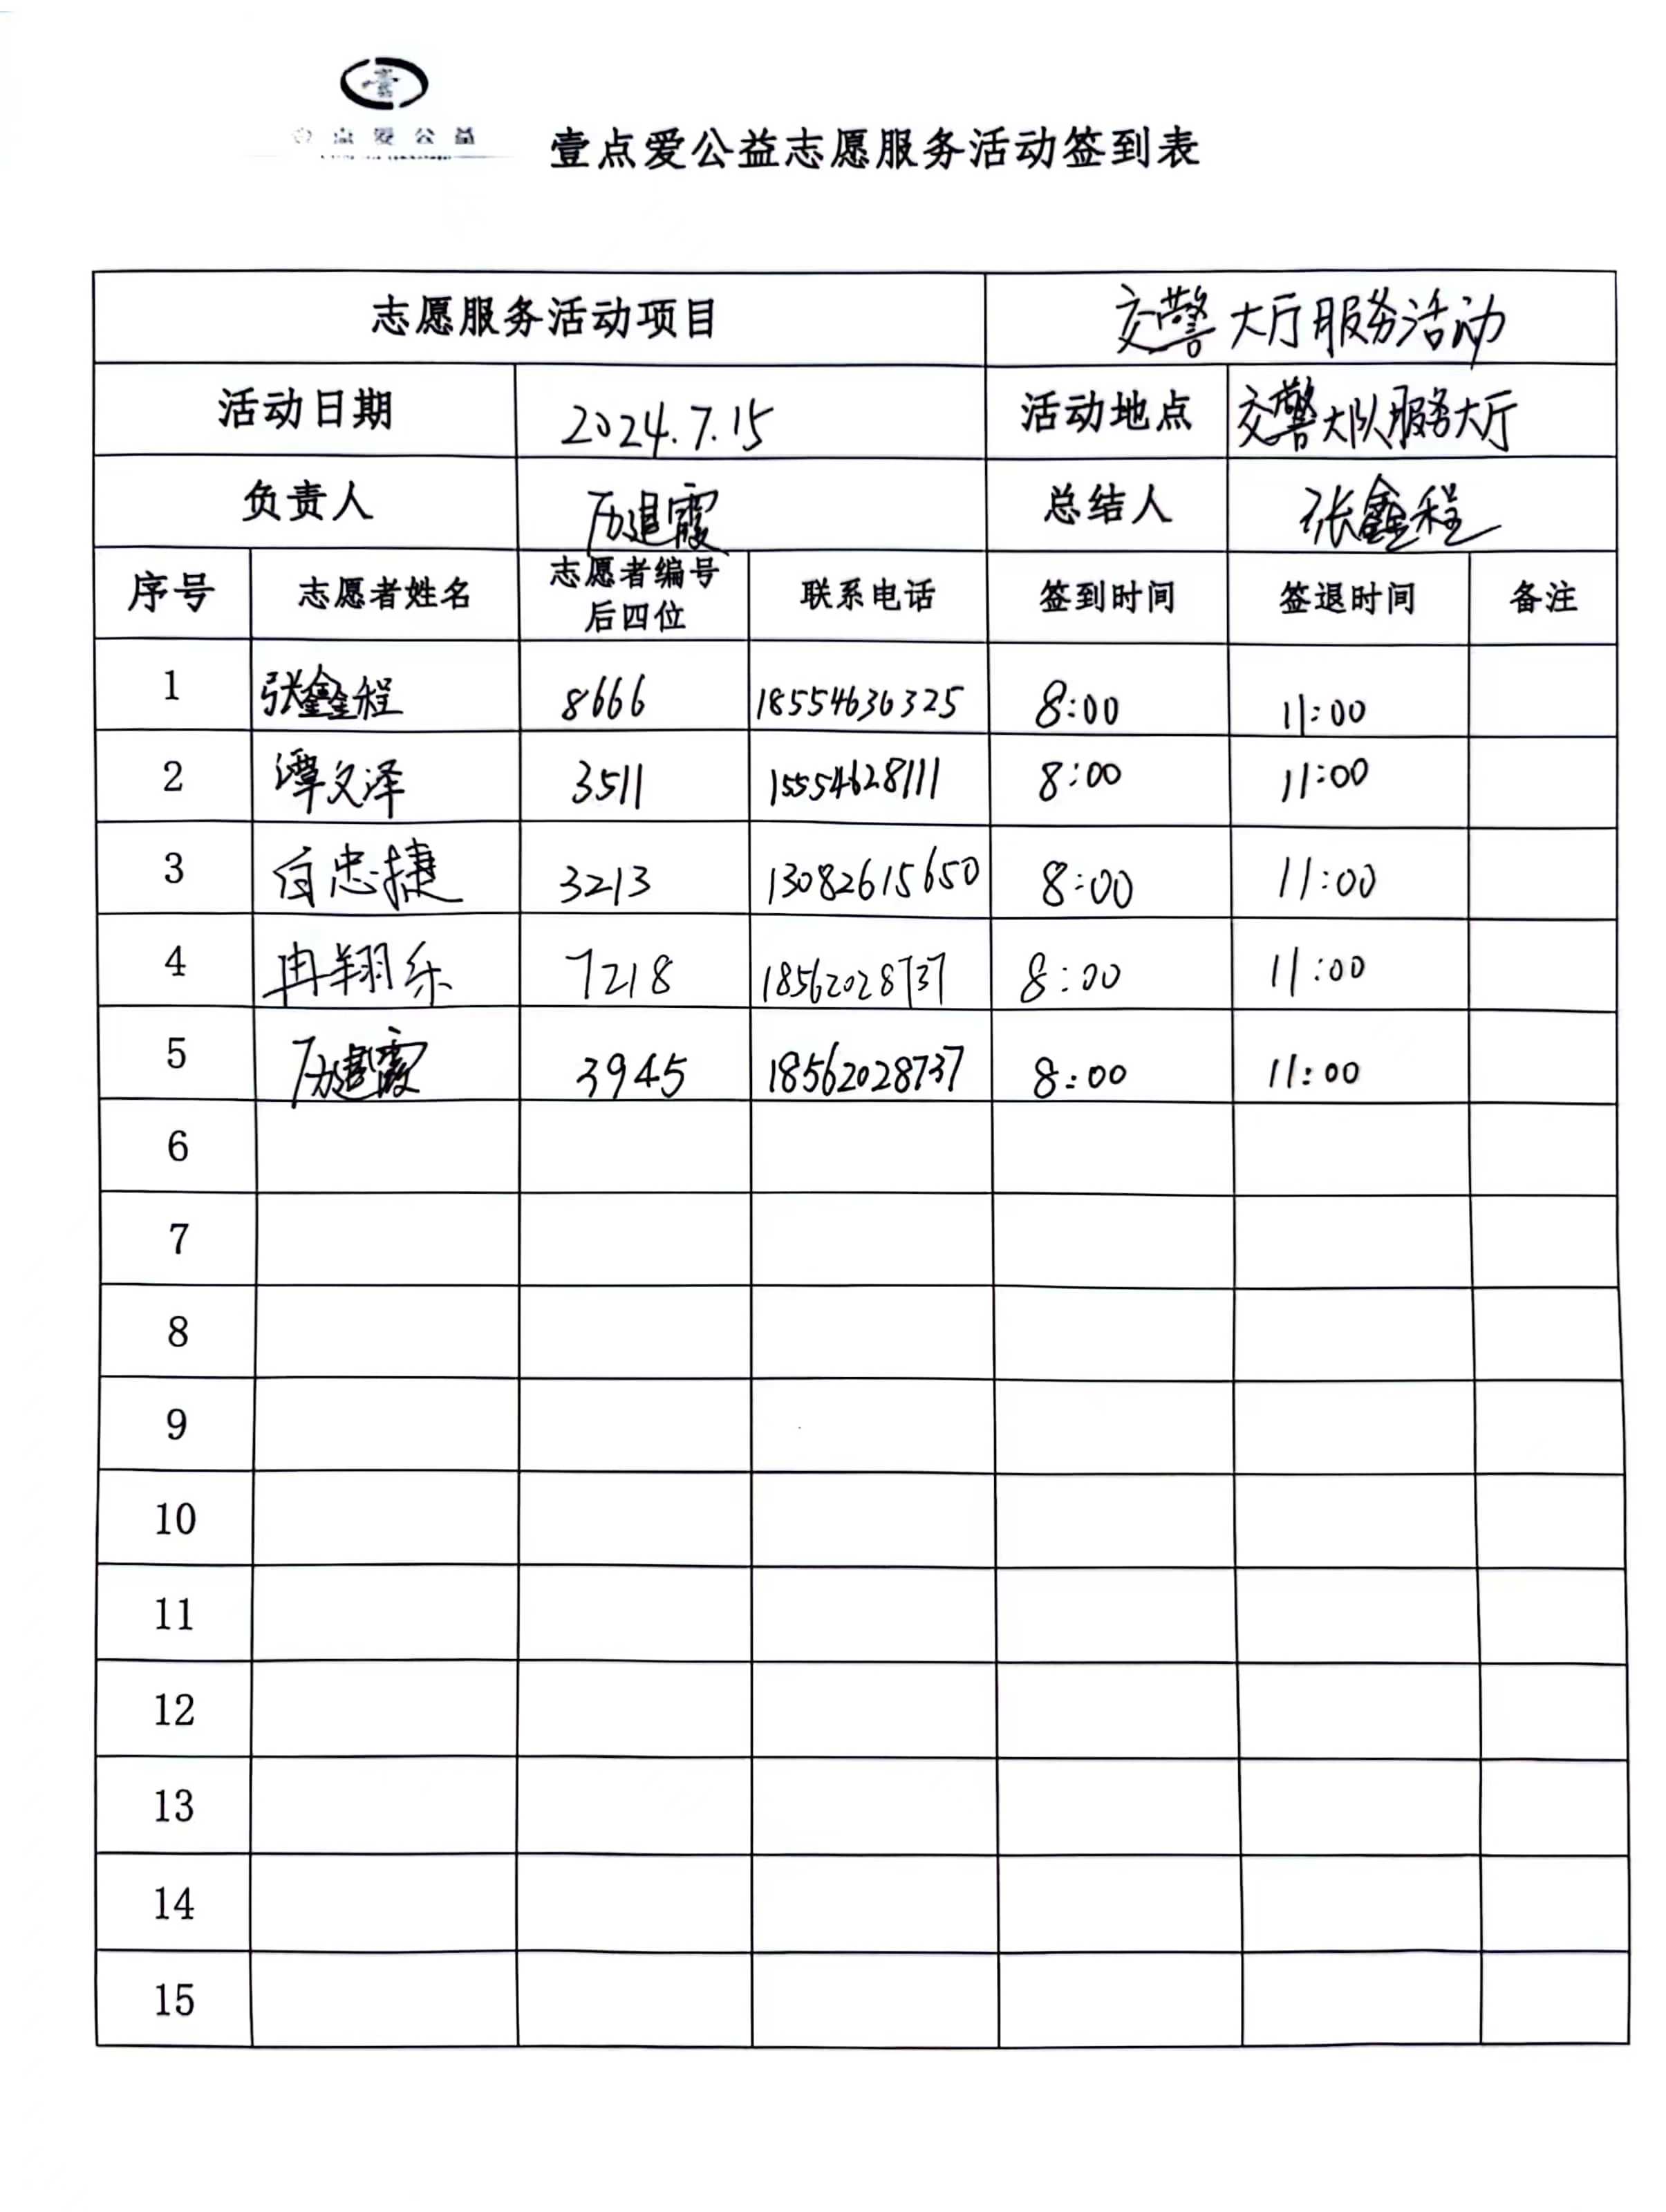 壹点爱公益
壹点爱公益志愿服务活动签到表
志愿服务活动项目 交警大厅服务活动
活动日期 2024.7.15 活动地点 交警大队服务大厅
负责人 霞 总结人 张鑫程
序号 志愿者姓名 志愿者编号后四位 联系电话 签到时间 签退时间 备注
1 张鑫程 8666 18554636325 8:00 11:00
2 谭文泽 3511 15554628111 8:00 11:00
3 白忠捷 3213 13082615650 8:00 11:00
4 冉翔乐 7218 18562028737 8:00 11:00
5 霞 3945 18562028737 8:00 11:00
6
7
8
9
10
11
12
13
14
15